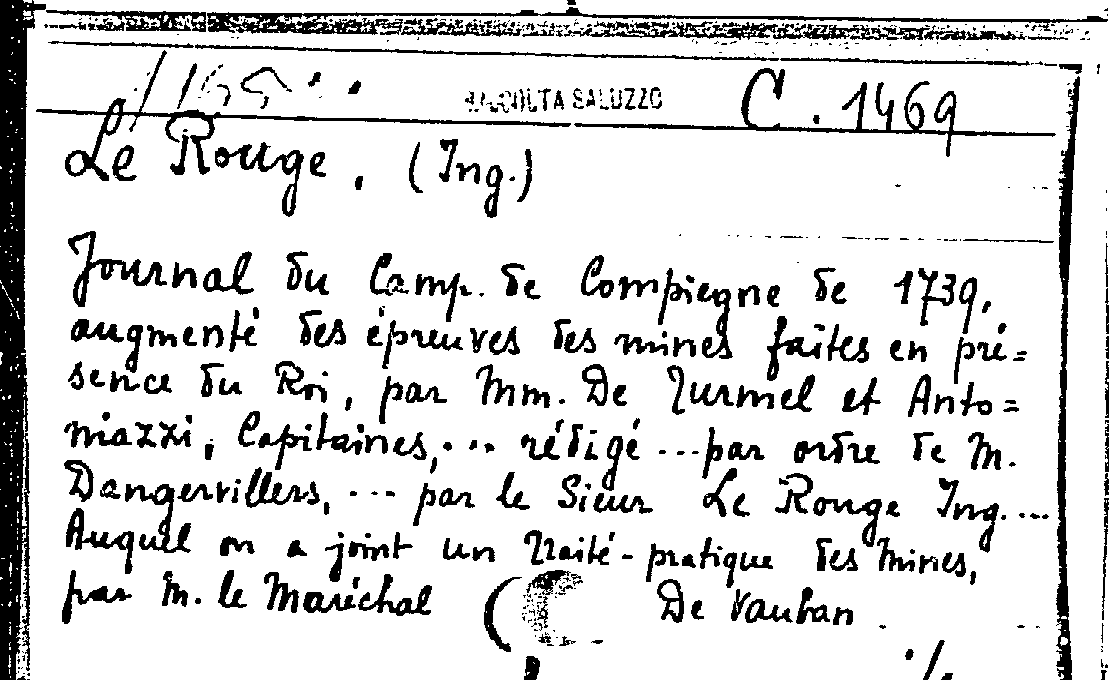 RACCOLTA SALUZZO C. 1469
Le Rouge, (Ing.)
Journal du Camp. de Compiegne de 1739,
augmenté des épreuves des mines faites en pré=
sence du Roi, par Mm. De Turmel et Anto=
niazzi, Capitaines,... rédigé ...par ordre de M.
Dangervillers, ... par le Sieur Le Rouge Ing. ...
Auquel on a joint un Traité-pratique des Mines,
par M. le Maréchal De Vauban
./.